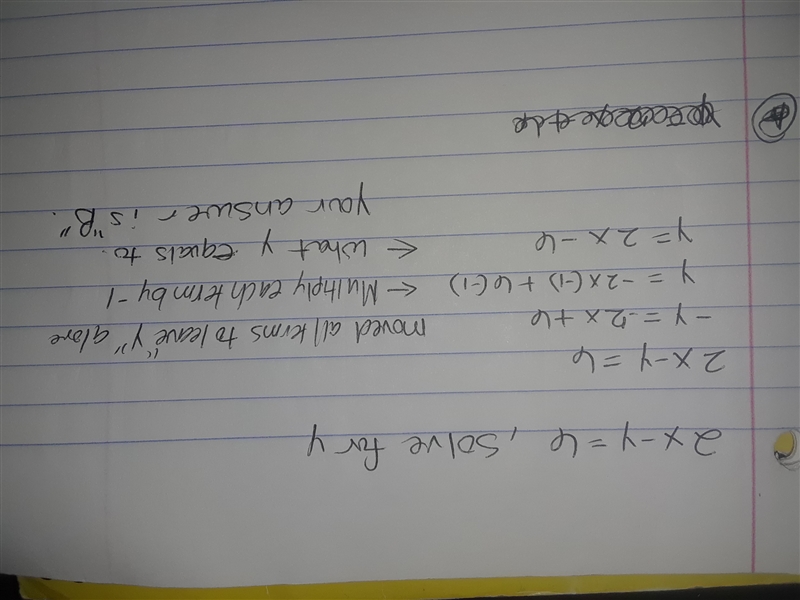 2x-y=6, solve for y
2x-y=6
-y=-2x+6 moved all terms to leave "y" alone
y=-2x(-1)+6(-1) ← Multiply each term by -1
y=2x-6 ← what y equals to.
your answer is "B".